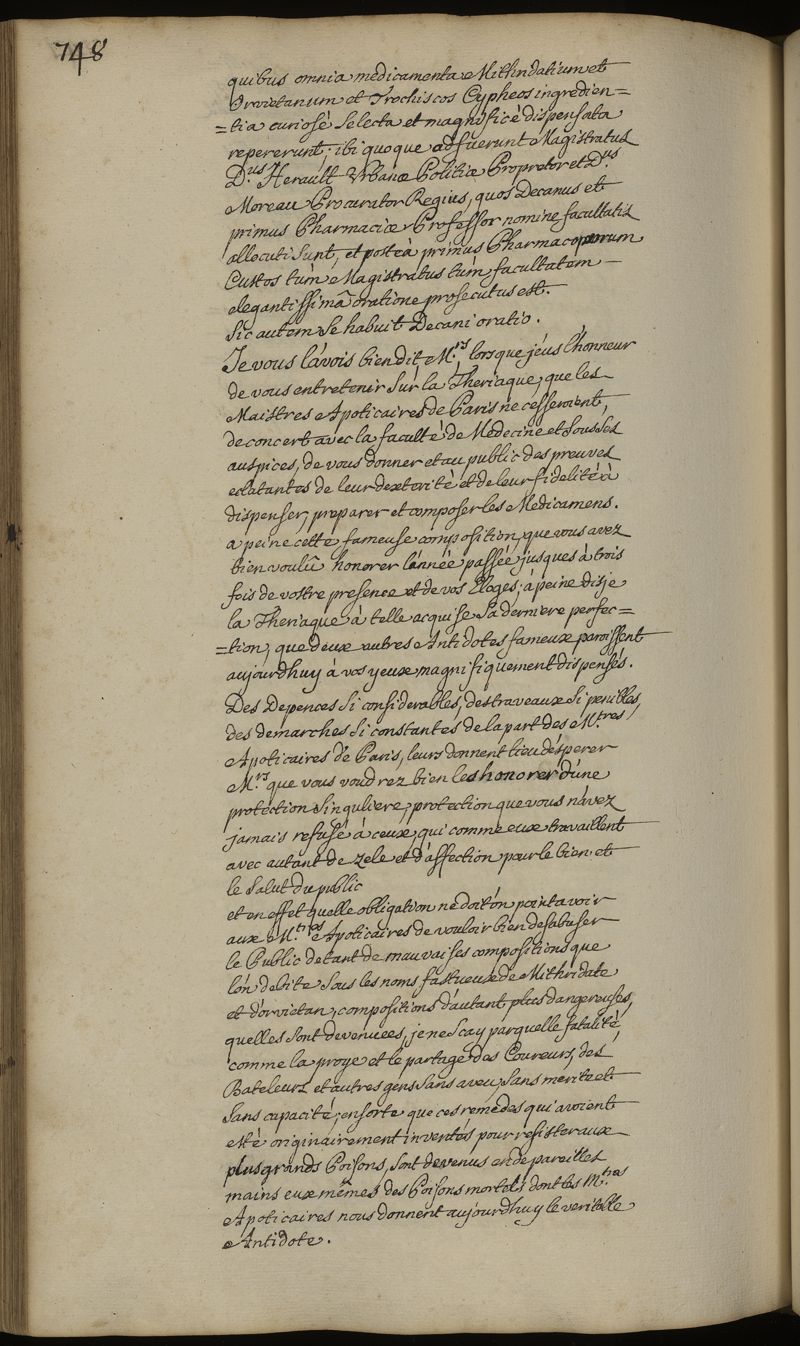 748
quibus omnia medicamenta Mithridatium et
Orvietanum et Trochiscos Cypheos ingredien=
=tia curiosè selecta et magnificè dispensata
repererunt; ibi quoque adfuerunt Magistratus
D.us Herault Urbanæ Politiæ Proprætor et D.us
Moreau Procurator Regius, quos Decanus et
primus Pharmaciæ Professor nomine facultatis
allocuti sunt, et posteà primus Pharmacopœorum
Custos tùm Magistratus tùm facultatem —
elegantissimâ oratione prosecutus est.
Sic autem se habuit Decani oratio.
Je vous l'avois bien dit, M.rs, lorsque j'éus l'honneur
de vous entretenir sur la Theriaque, que les
Maistres Apoticaires de Paris ne cesseroient,
de concert avec la faculté de Medecine et sous ses
auspices, de vous donner et au public des preuves
eclatantes de leur dexterité et de leur fidelité à
dispenser, preparer et composer les Medicamens.
a peine cette fameuse composition, que vous avez
bien voulû honorer l'année passée jusques à trois
fois de vostre presence et de vos Eloges; à peine disje
la Theriaque à telle acquise sa derniere perfec=
=tion, que deux autres Antidotes fameux paroissent
aujourdhuy à vos yeux magnifiquement dispensés.
Des Depences si considerables, des travaux si penibles,
des demarches si constantes de la part des M.tres
Apoticaires de Paris, leurs donnent lieu désperer
M.rs que vous voudrez bien les honorer d'une
protection singuliere, protection que vous n'avez
jamais refusé à ceux, qui comme eux travaillent
avec autant de zele et d'affection pour le bien et
le salut du public
et en effet quelle obligation ne doit ón point avoir
aux M.tres Apoticaires de vouloir bien desabuser
le Public de tant de mauvaises compositions que
l'ón debite sous les noms fastueux de Mithridate
et d'orvietan, compositions d'autant plus dangereuses,
quelles sont devenuees, je ne scay par quelle fatalité,
comme la proye et le partage des Coureurs, des
Bateleurs et autres gens sans aveu, sans merite et
sans capacité; ensorte que ces remedes qui avoient
esté originairement inventés pour resister aux
plus grands Poisons, sont devenus en de pareilles
mains eux mêmes des Poisons mortels dont les M.tres
Apoticaires nous donnent aujourdhuy le veritable
Antidote.